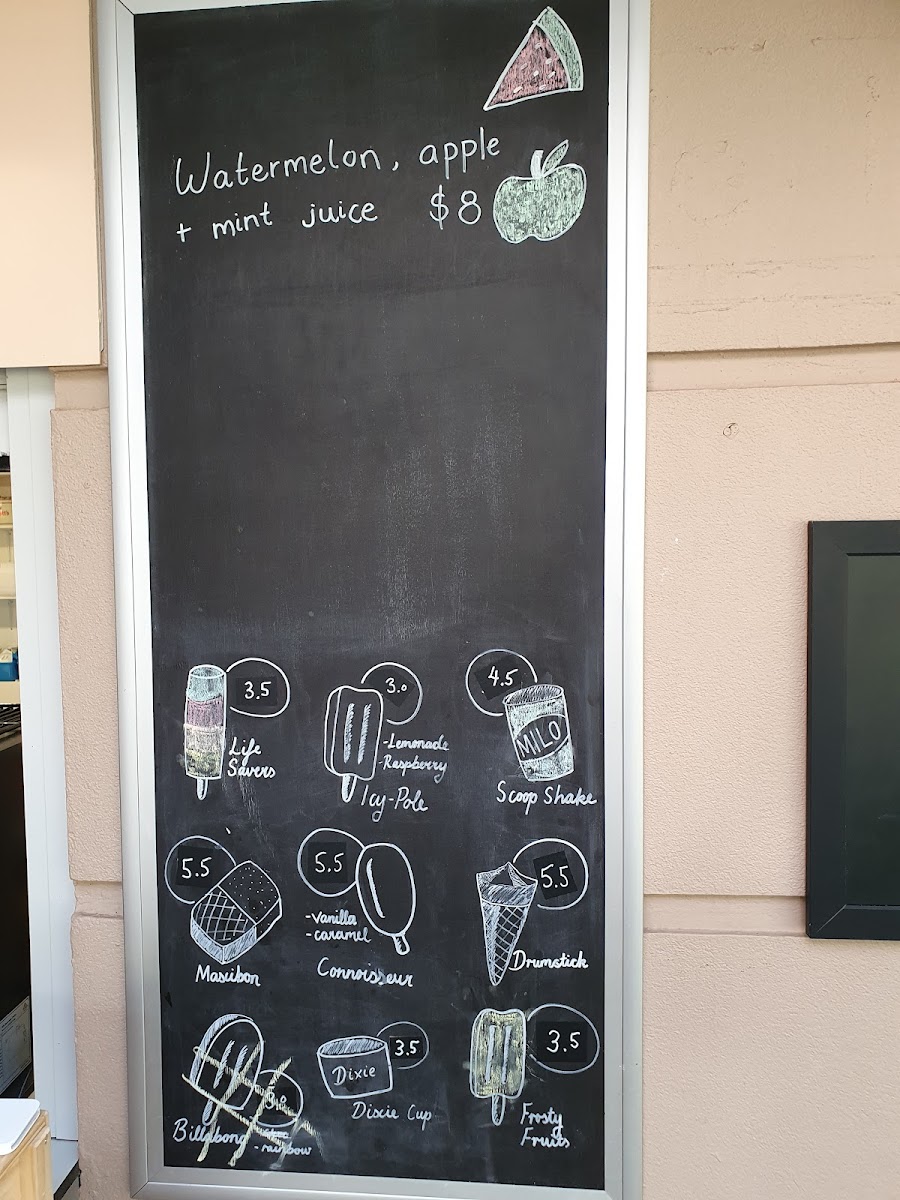 Watermelon, apple
+ mint juice $8
3.5
Life
Savers
3.0
-Lemonade
-Raspberry
Icy-Pole
4.5
MILO
Scoop Shake
5.5
Maxibon
5.5
-Vanilla
-caramel
Connoisseur
5.5
Drumstick
3.0
Billabong
-rainbow
3.5
Dixie
Dixie Cup
3.5
Frosty
Fruits